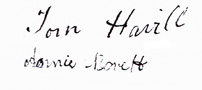 Tom Havill
Lonnie Lovett